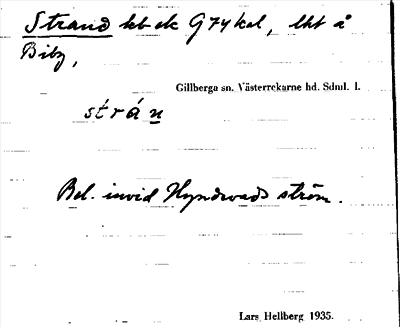 Strand kb ek G 74 kal, lht å
Biby,
Gillberga sn. Västerrekarne hd. Sdml. l.
strán
Bel. invid Hyndevads ström.
Lars Hellberg 1935.